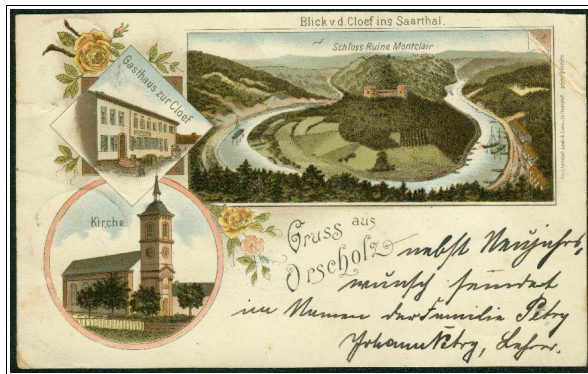 Blick v. d. Cloef ins Saarthal.
Schloss Ruine Montclair
Gasthaus zur Cloef
Kirche.
Gruss aus
Orscholz
nebst Neujahrs,
wunsch sendet
im Namen der Familie Petry
Johann Petry, Lehrer.